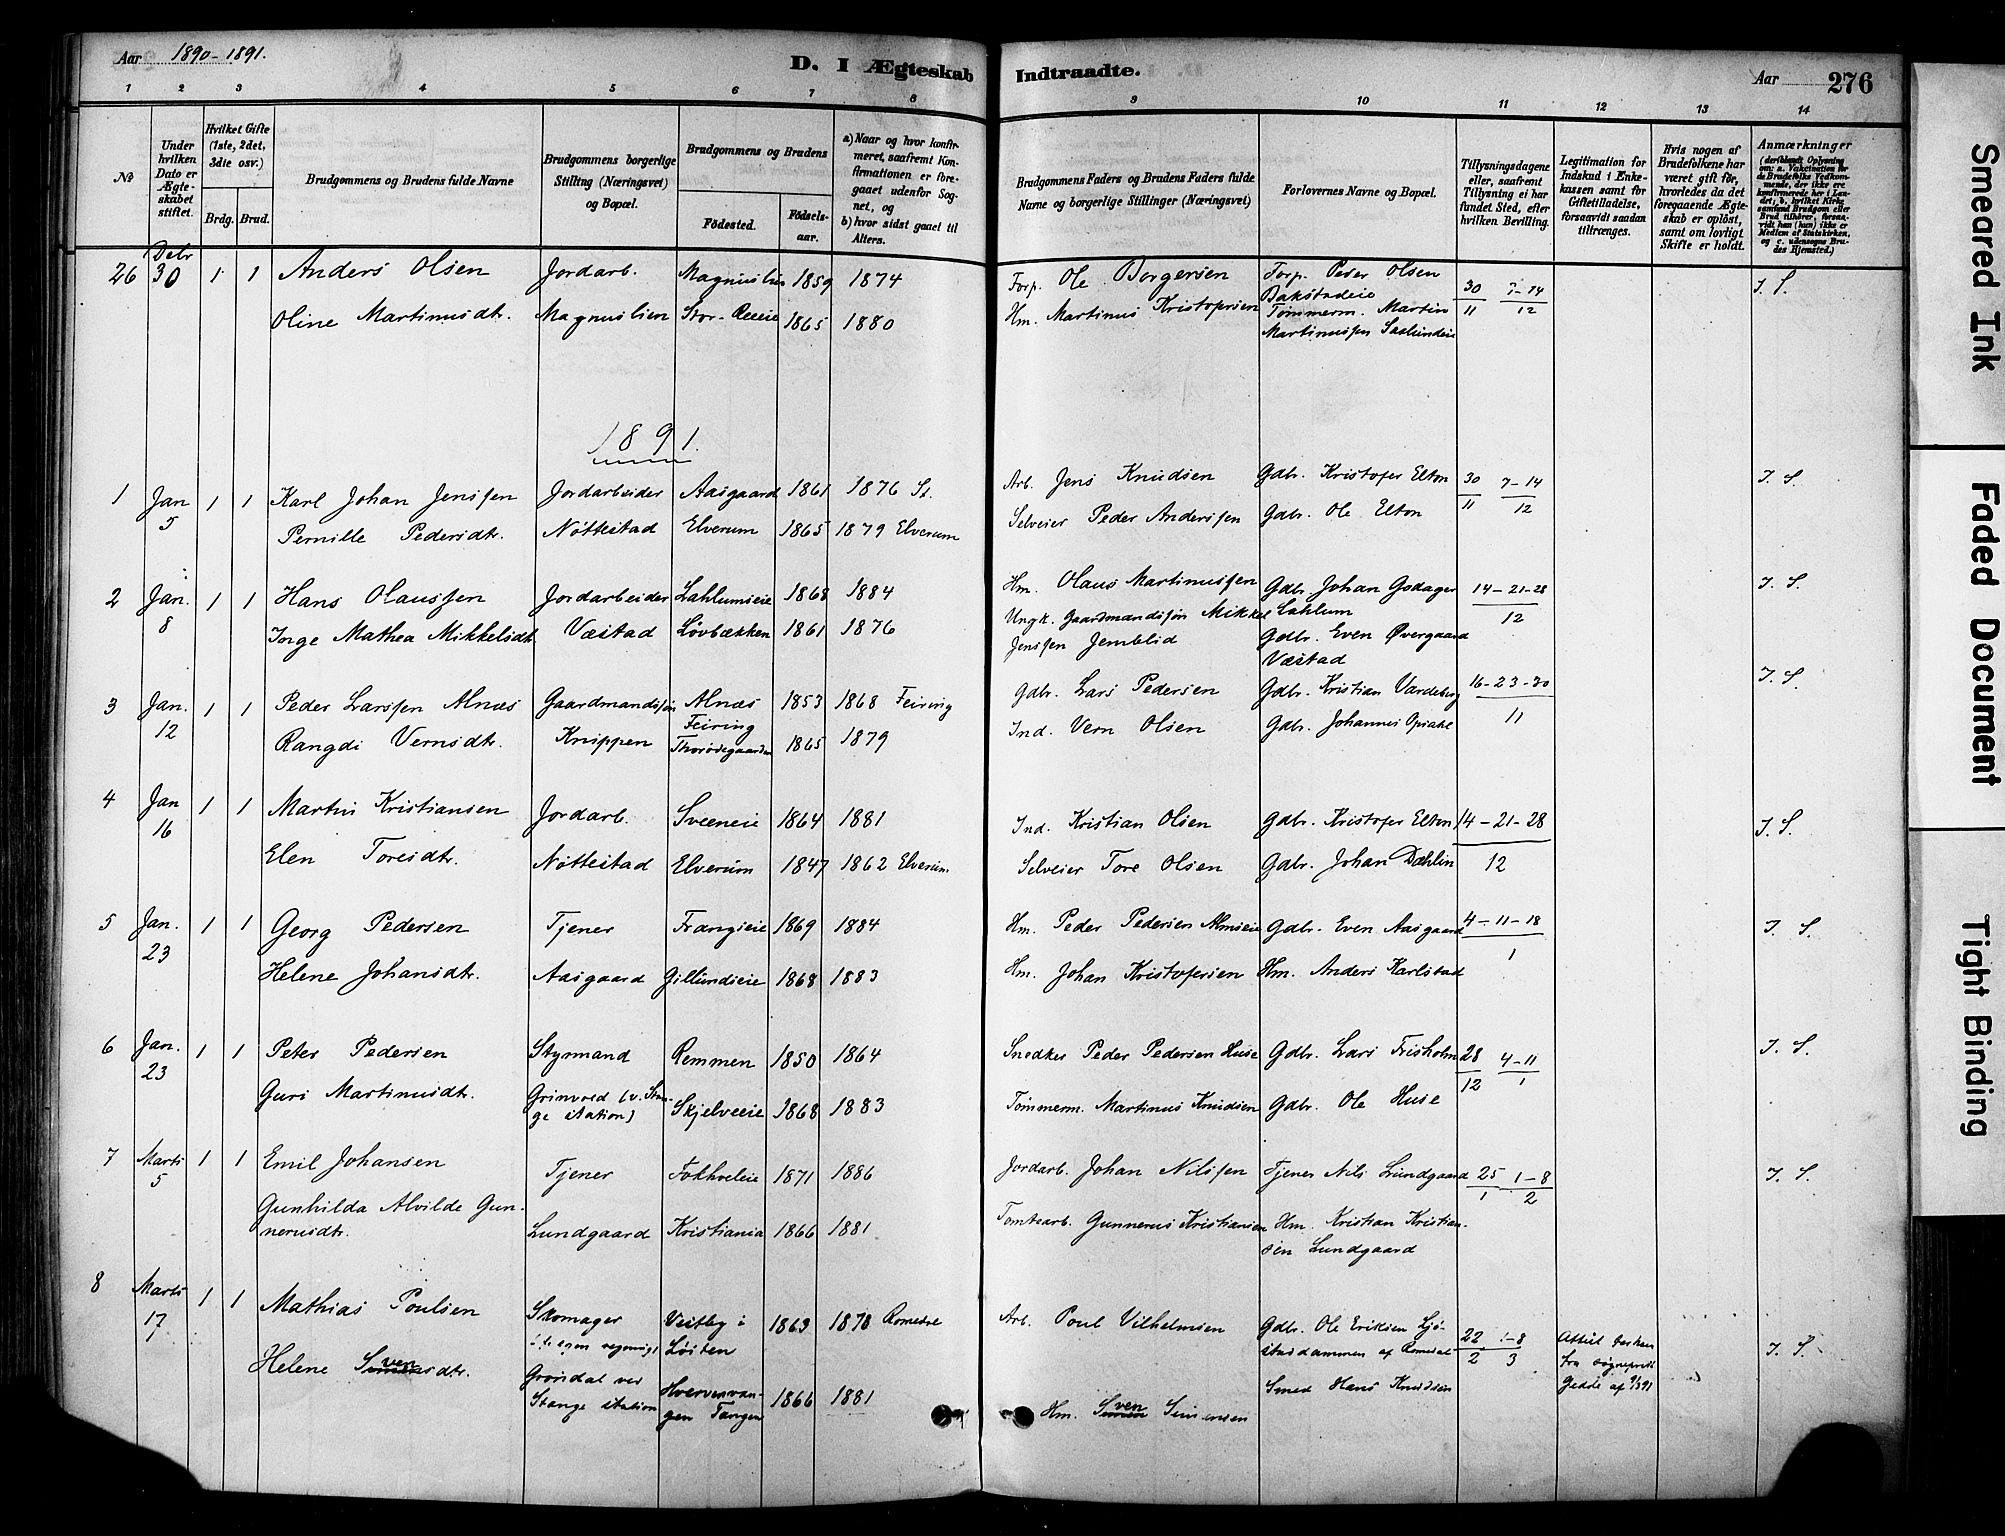 Aar 1890-1891.
D. I Ægteskab Indtraadte.
Aar 276
1 2 3 4 5 6 7 8 9 10 11 12 13 14
No
Under hvilken Dato er Ægteskabet stiftet.
Hvilket Gifte (1ste, 2det, 3die osv.)
Brdg. Brud.
Brudgommens og Brudens fulde Navne
Brudgommens borgerlige Stilling (Næringsvei) og Bopæl.
Brudgommens og Brudens
Fødested. Fødselsaar.
a) Naar og hvor konfirmeret, saafremt Konfirmationen er foregaaet udenfor Sognet, og
b) hvor sidst gaaet til Alters.
Brudgommens Faders og Brudens Faders fulde Navne og borgerlige Stillinger (Næringsvei)
Forlovernes Navne og Bopæl.
Tillysningsdagene eller, saafremt Tillysning ei har fundet Sted, efter hvilken Bevilling.
Legitimation for Indskud i Enkekassen samt for Giftetilladelse, forsaavidt saadan tiltrænges.
Hvis nogen af Brudefolkene har været gift før, hvorledes da det foregaaende Ægteskab er opløst, samt om lovligt Skifte er holdt.
Anmærkninger
(deriblandt Oplysning om: a. Vakcination for de Brudefolks Vedkommende, der ikke ere konfirmerede her i Landet; b. hvilket Kirkesamfund Brudgom eller Brud tilhører, forsaavidt han (hun) ikke er Medlem af Statskirken, og c. udensogns Brudes Hjemsted.)
26 Debr 30 1 1 Anders Olsen Jordarb. Magnuslien 1859 1874 Forp. Ole Borgersen Forp. Peder Olsen Bakstadeie 30/11 7-14/12 I. S.
Oline Martinusdtr. Magnuslien Stor-Reeeie 1865 1880 Hm. Martinus Kristofersen Tømmerm. Martin Martinussen Saxlundeie
1891.
1 Jan 5 1 1 Karl Johan Jenssen Jordarbeider Aasgaard 1861 1876 St. Arb. Jens Knudsen Gdbr. Kristofer Elton 30/11 7-14/12 I. S.
Pernille Pedersdtr. Nøttestad Elverum 1865 1879 Elverum Selveier Peder Anderssen Gdbr. Ole Elton
2 Jan. 8 1 1 Hans Olaussen Jordarbeider Lahlumseie 1868 1884 Hm. Olaus Martinussen Gdbr Johan Godager Lahlum 14-21-28/12 I. S.
Inge Mathea Mikkelsdtr. Væstad Løvbækken 1861 1876 Ungk. Gaardmandssøn Mikkel Jenssen Jemblid Gdbr. Even Øvergaard Væstad
3 Jan. 12 1 1 Peder Larssen Alnæs Gaardmandssøn Alnæs Feiring 1853 1868 Feiring Gdbr. Lars Pedersen Gdbr. Kristian Vardeberg 16-23-30/11 I. S.
Rangdi Vernsdtr. Knippen 1865 1879 Ind. Vern Olsen Gdbr. Johannes Opsahl
4 Jan 16 1 1 Martin Kristiansen Jordarb. Sveeneie 1864 1881 Ind. Kristian Olsen Gdbr. Kristofer Elton 14-21-28/12 I. S.
Elen Toresdtr. Nøttestad Elverum 1847 1862 Elverum Selveier Tore Olsen Gdbr. Johan Dæhlin
5 Jan. 23 1 1 Georg Pedersen Tjener Frangseie 1869 1884 Hm. Peder Pedersen Almseie Gdbr. Even Aasgaard 4-11-18/1 I. S.
Helene Johansdtr. Aasgaard Gillundseie 1868 1883 Hm. Johan Kristofersen Hm. Anders Karlstad
6 Jan. 23 1 1 Peter Pedersen Styrmand Remmen 1850 1864 Snedker Peder Pedersen Huse Gdbr. Lars Frisholm 28/12 4-11/1 I. S.
Guri Martinusdtr. Grimvold (v. Stange station) Skjelveeie 1868 1883 Tømmerm. Martinus Knudsen Gdbr. Ole Huse
7 Marts 5 1 1 Emil Johansen Tjener Fokhveleie 1871 1886 Jordarb. Johan Nilssen Tjener Nils Lundgaard 25/1 1-8/2 I. S.
Gunhilda Alvilde Gunnerusdtr. Lundgaard Kristiania 1866 1881 Tomtearb. Gunnerus Kristiansen Hm. Kristian Kristiansen Lundgaard
8 Marts 17 1 1 Mathias Poulsen Skomager Vestby i Løiten 1863 1878 Romedal Arb. Poul Vilhelmsen Gdbr. Ole Eriksen af Romedal 22/2 1-8/3 Attest fra sogneprest Gedde af I. S.
Helene Svensdtr. Grøndal ved Stange station Tangen 1866 1881 Hm. Sven Simensen Smed Hans Knudsen
Smeared Ink
Faded Document
Tight Binding